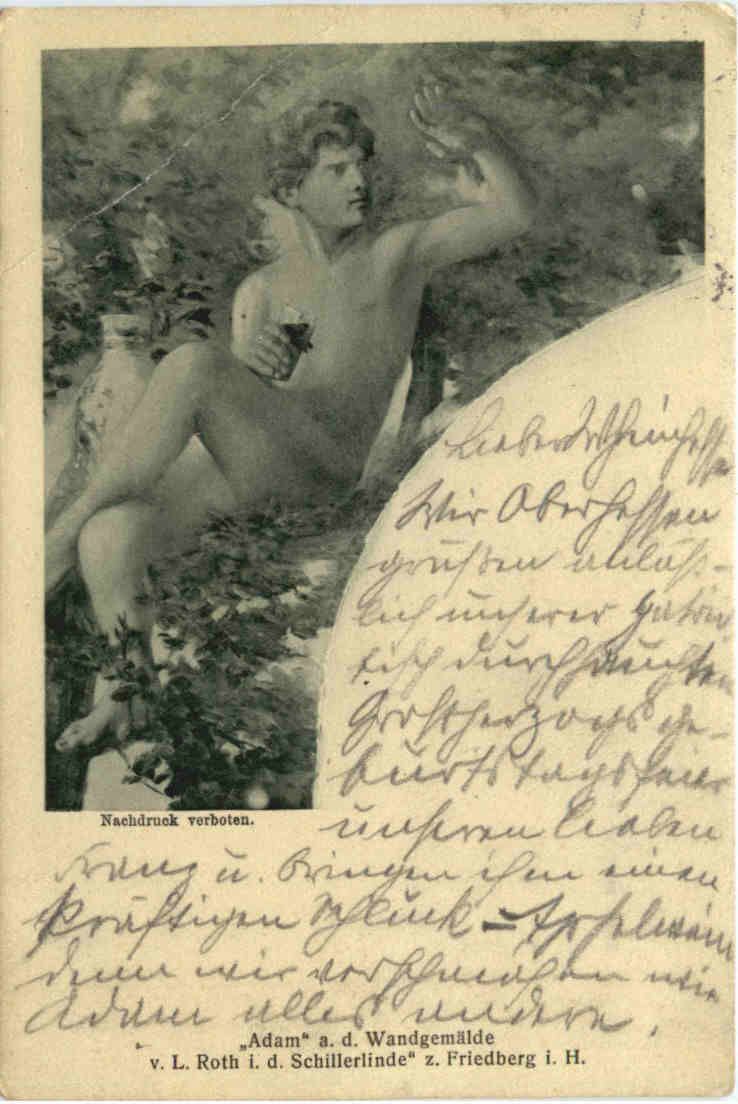 Lieber Rheinhesse
Wir Oberhessen
grüßen anläß-
lich unserer patrio
tisch durchhauchten
Großherzogsge-
burtstagsfeier
unseren lieben
Franz u. bringen ihm einen
kräftigen Schluck = Apfelwein
denn wir verschmähen wie
Adam alles andere.
Nachdruck verboten.
„Adam“ a. d. Wandgemälde
v. L. Roth i. d. Schillerlinde“ z. Friedberg i. H.